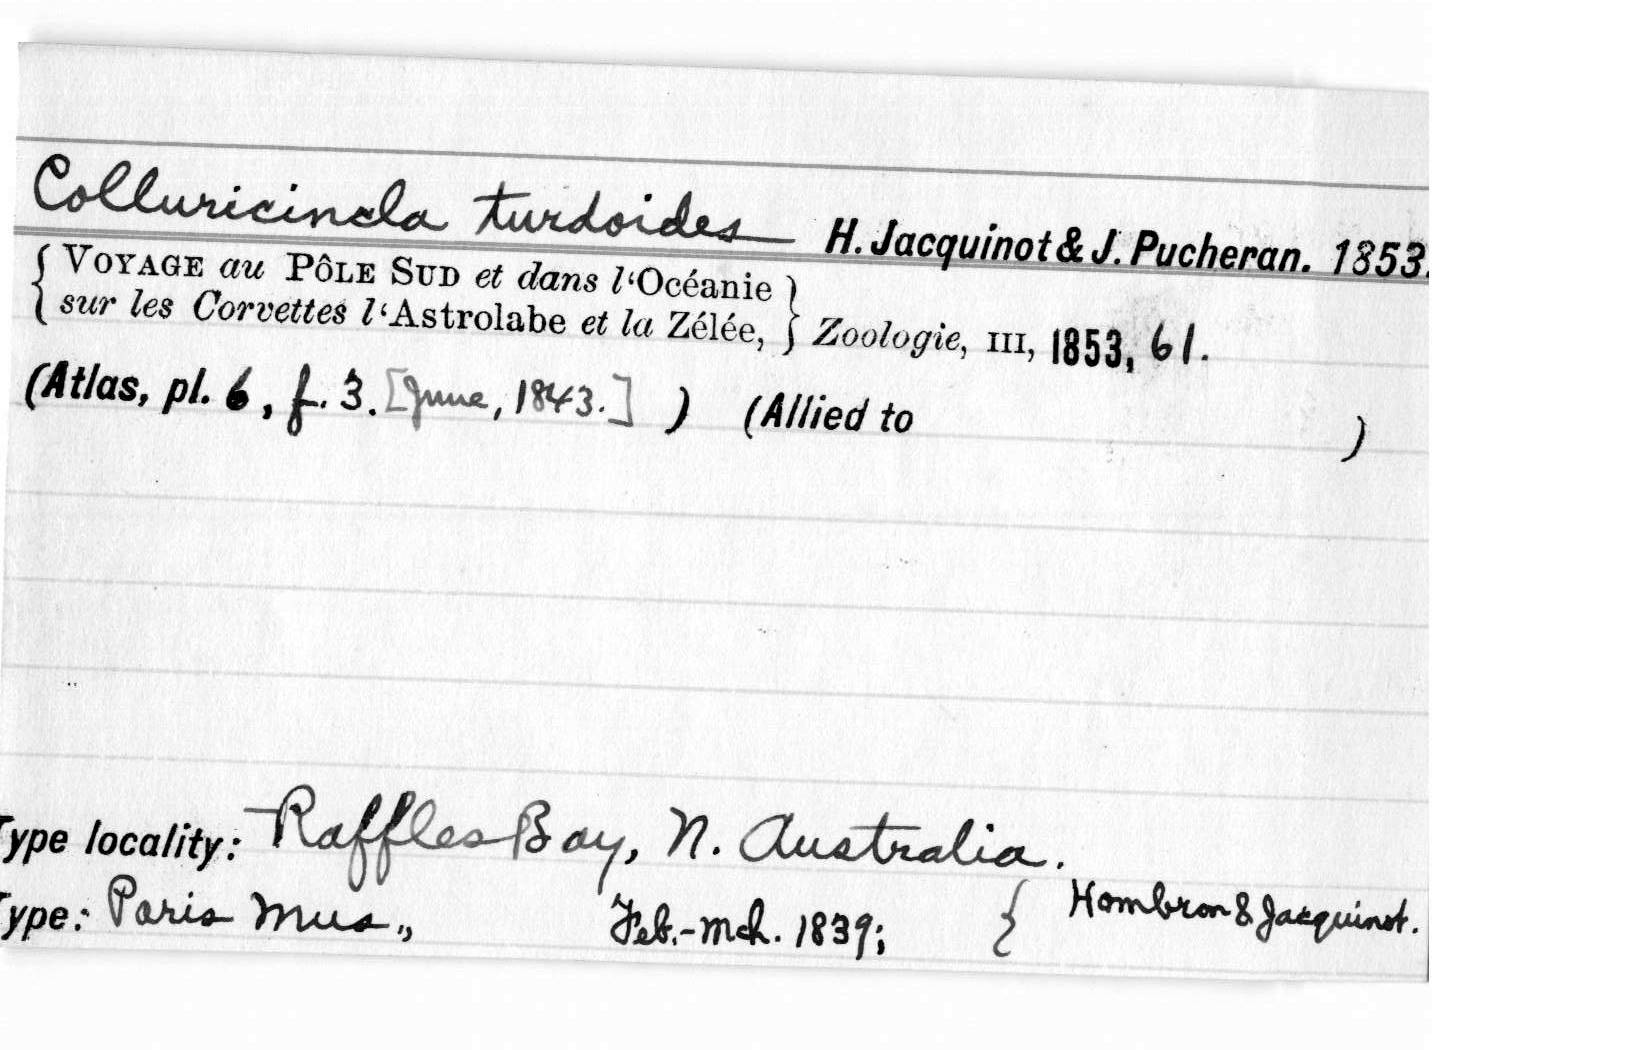 Colluricincla turdoides H. Jacquinot & J. Pucheran. 1853.
{ VOYAGE au PÔLE SUD et dans l‘Océanie }
{ sur les Corvettes l‘Astrolabe et la Zélée, } Zoologie, III, 1853, 61.
(Atlas, pl. 6, f. 3. [June, 1843.] ) (Allied to )
Type locality: Raffles Bay, N. Australia.
Type: Paris Mus., Feb.-Mch. 1839; { Hombron & Jacquinot.